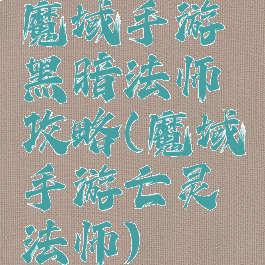 魔域手游
黑暗法师
攻略(魔域
手游亡灵
法师)